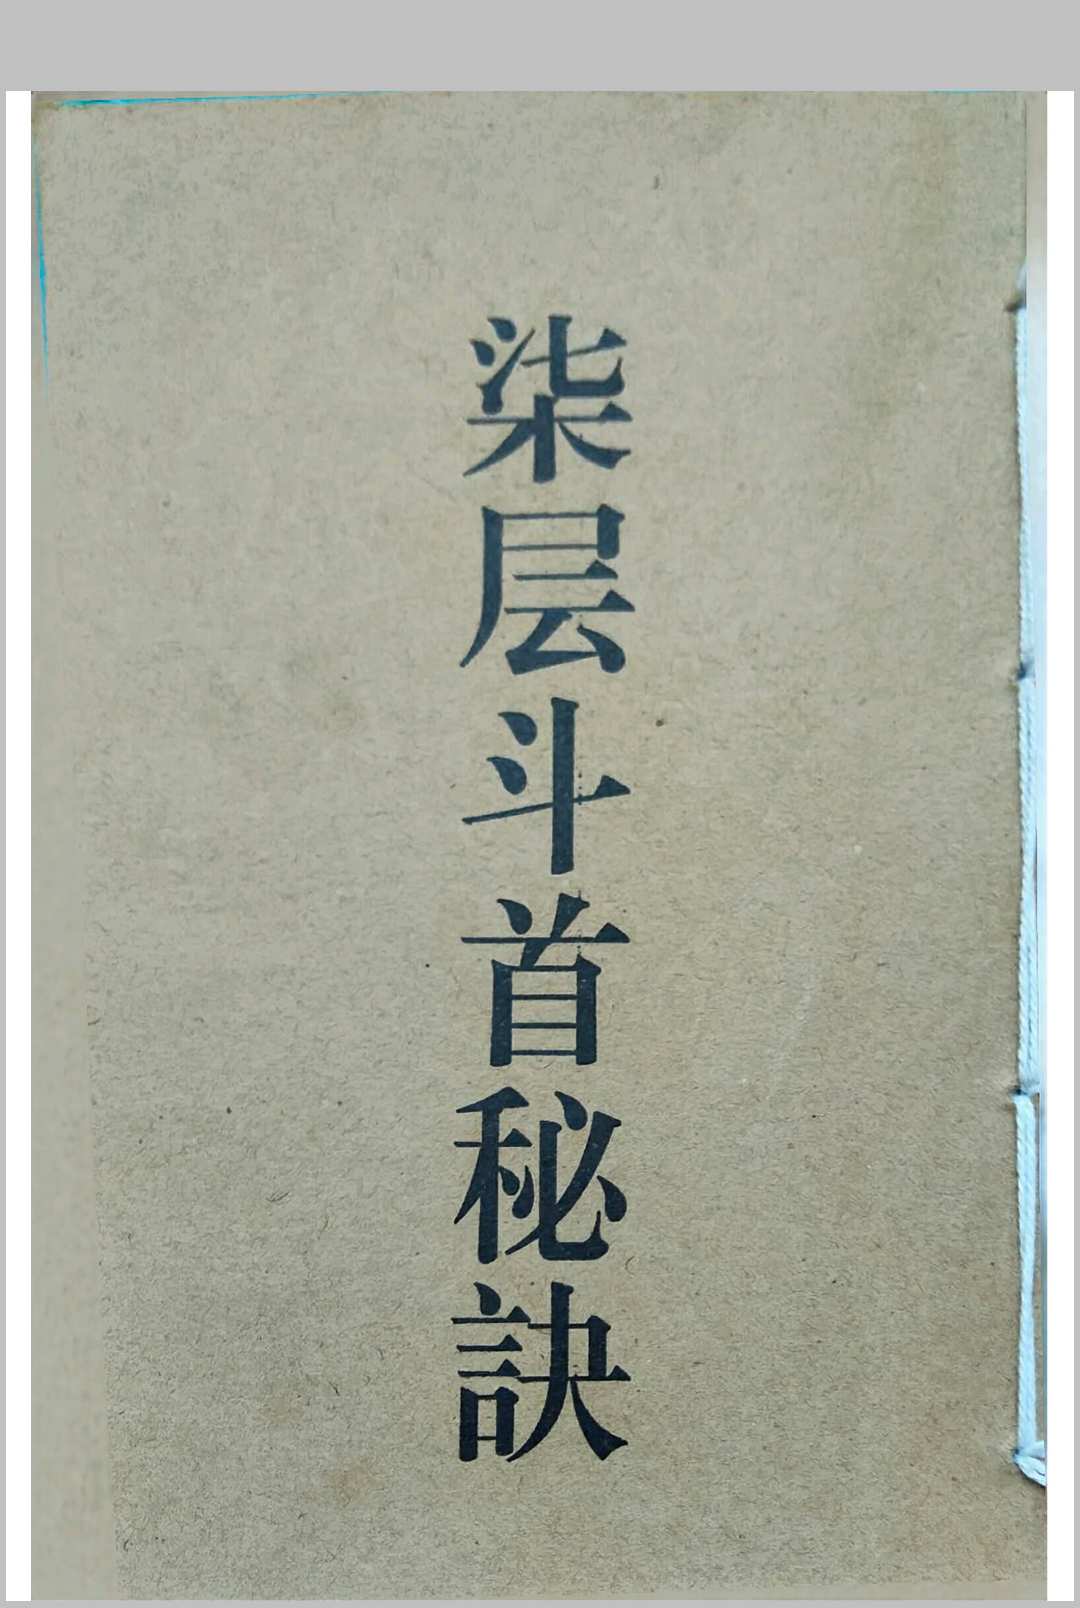 柒层斗首秘訣